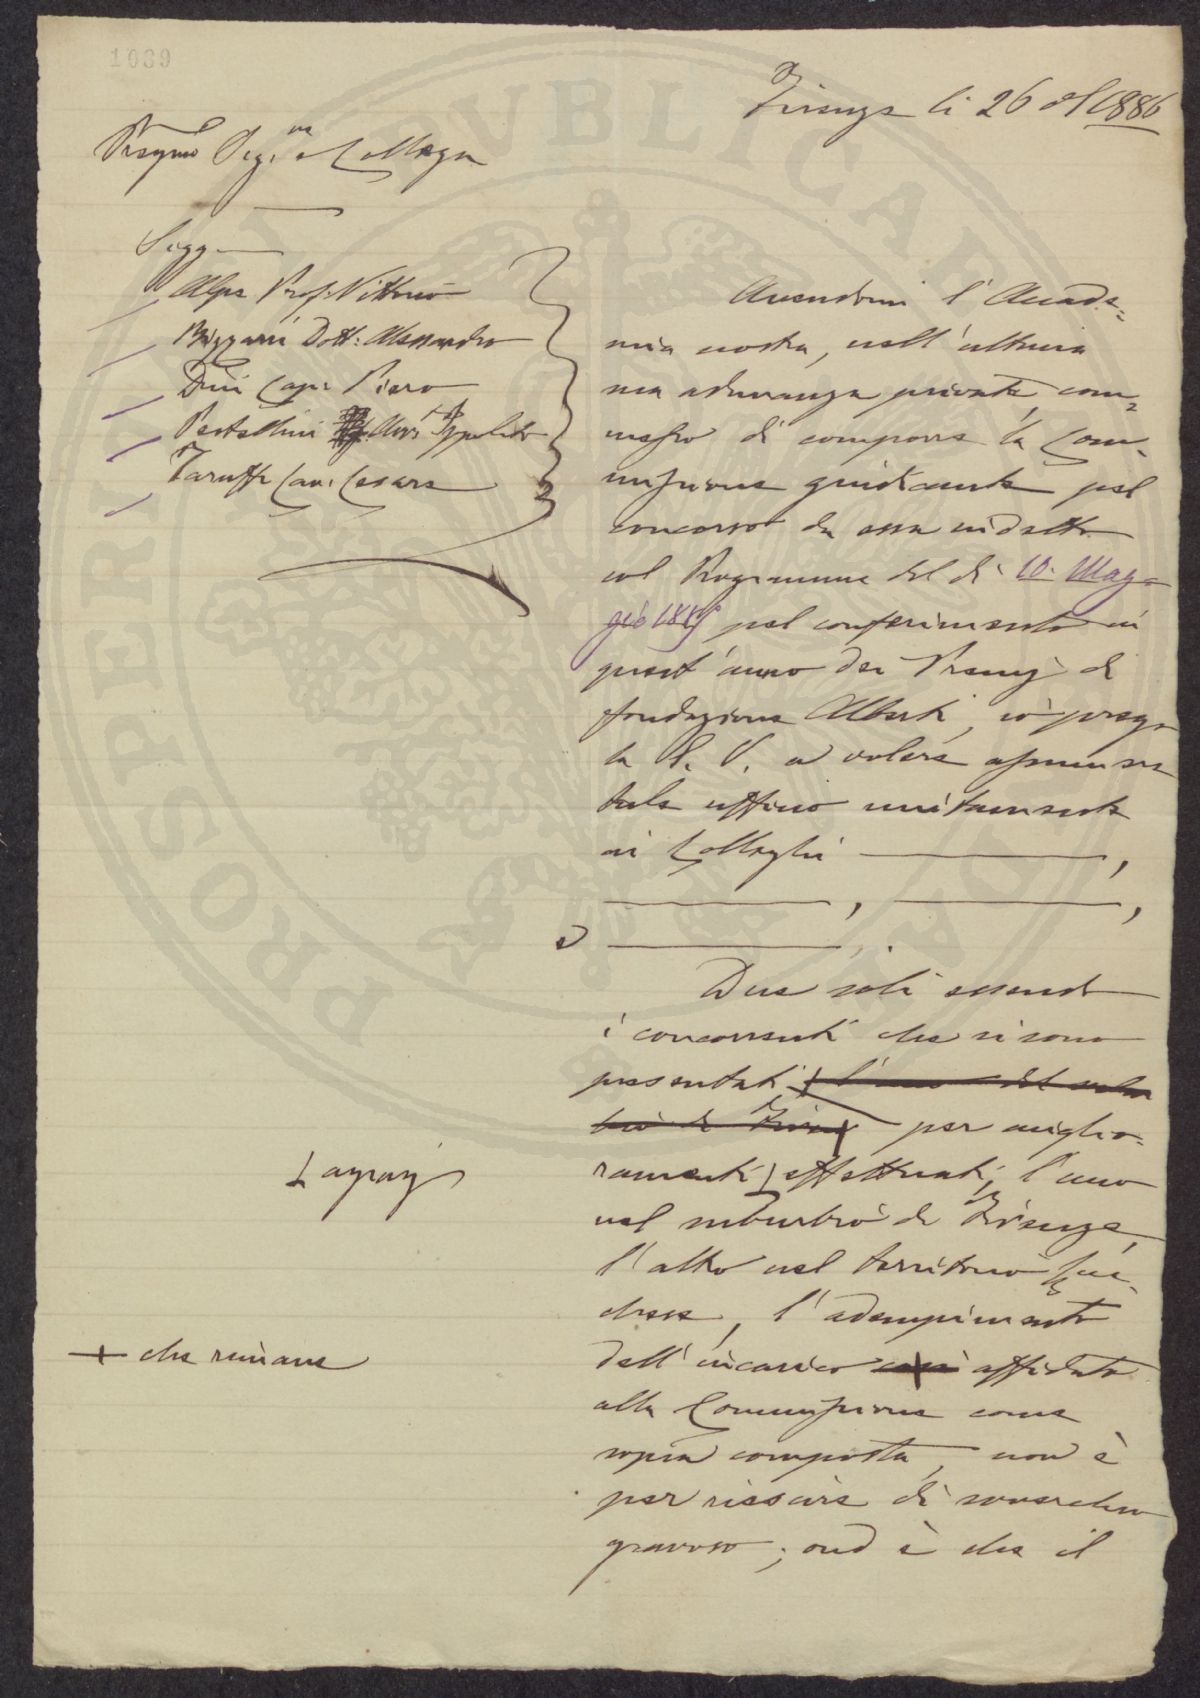 1039
Firenze li 26 del 1886
Pregmo Sigre e Collega
Sigg
Alpe Prof. Vittorio
Bizzarri Dott: Alessandro
Dini Cap. Piero
Pestellini Avv. Ippolito
Taruffi Cav. Cesare
Avendomi l'Accade=
mia nostra, nell'ultima
sua adunanza privata, com=
messo di comporre la Com=
missione giudicante pel
concorso da essa indetto
col Programma del dì 10. Mag=
gio 1885 pel conferimento in
quest'anno dei Premj di
fondazione Alberti, io prego
la S. V. a volere assumere
tale ufficio unitamente
ai Colleghi ,
, ,
e .
Due soli essendo
i concorrenti che si sono
presentati, l'uno del subur
bio di Firenze per miglio=
ramenti effettuati, l'uno
agrarj
nel suburbio di Firenze,
l'altro nel territorio Luc=
chese, l'adempimento
dell'incarico affidato
che rimane
alla Commissione come
sopra composta, non è
per riescire di soverchio
gravoso; ond'è che il